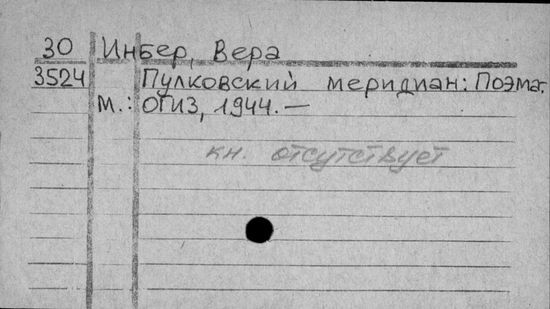 30 Инбер, Вера
3524 Пулковский меридиан: Поэма.
М.: ОГИЗ, 1944. —
кн. отсутствует